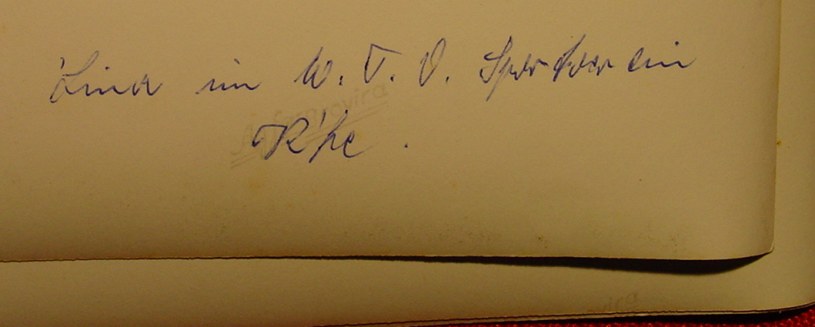 Lina im W. T. V. Sportverein
K'he.